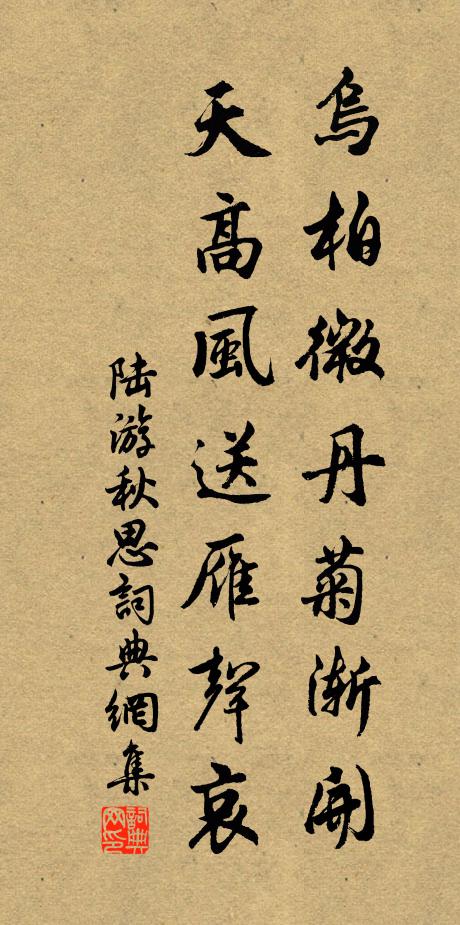 烏桕微丹菊漸開
天高風送雁聲哀
陸游秋思詞典網集
詞典
网印